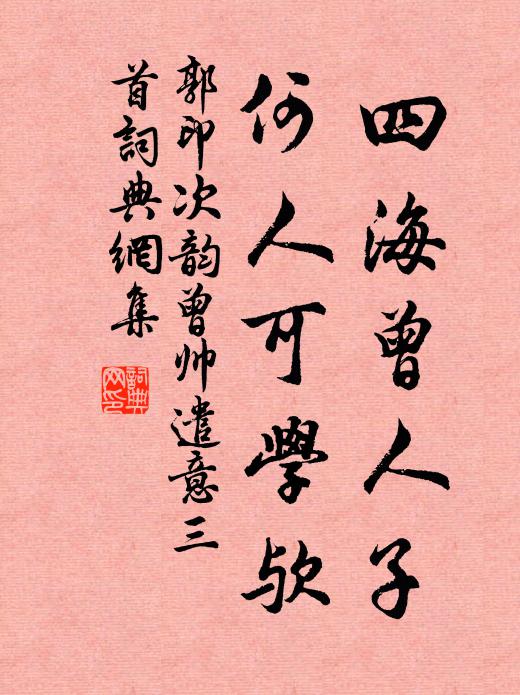 四海曾人子
何人可學欤
郭印次韵曾帅遣意三
首詞典網集
詞典网印